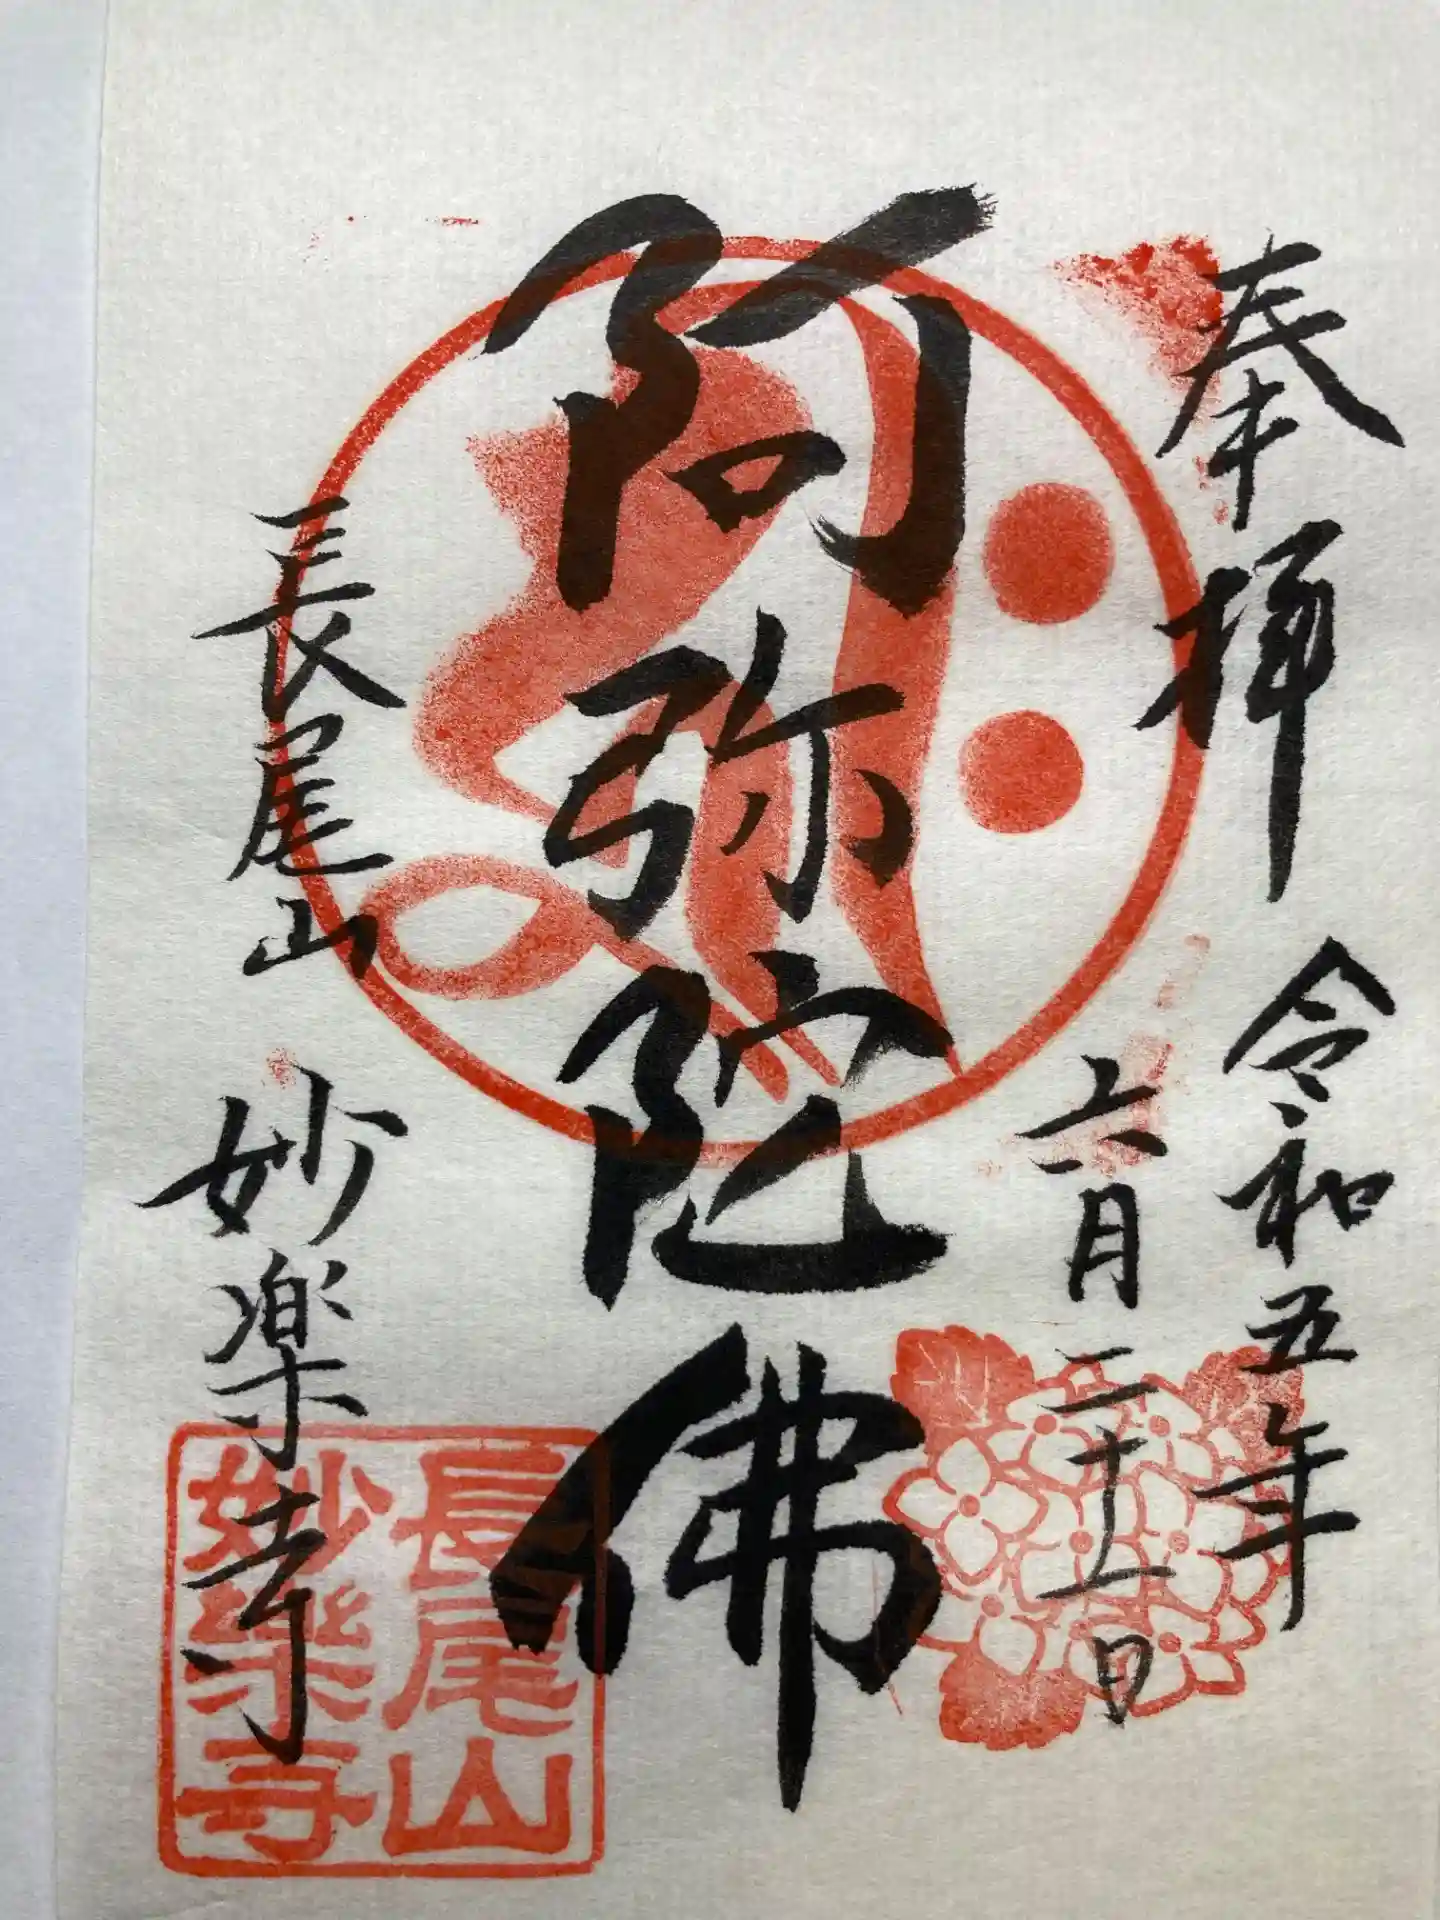 奉拝
令和五年
六月二十五日
阿弥陀佛
長尾山
妙楽寺
長尾山
妙樂寺